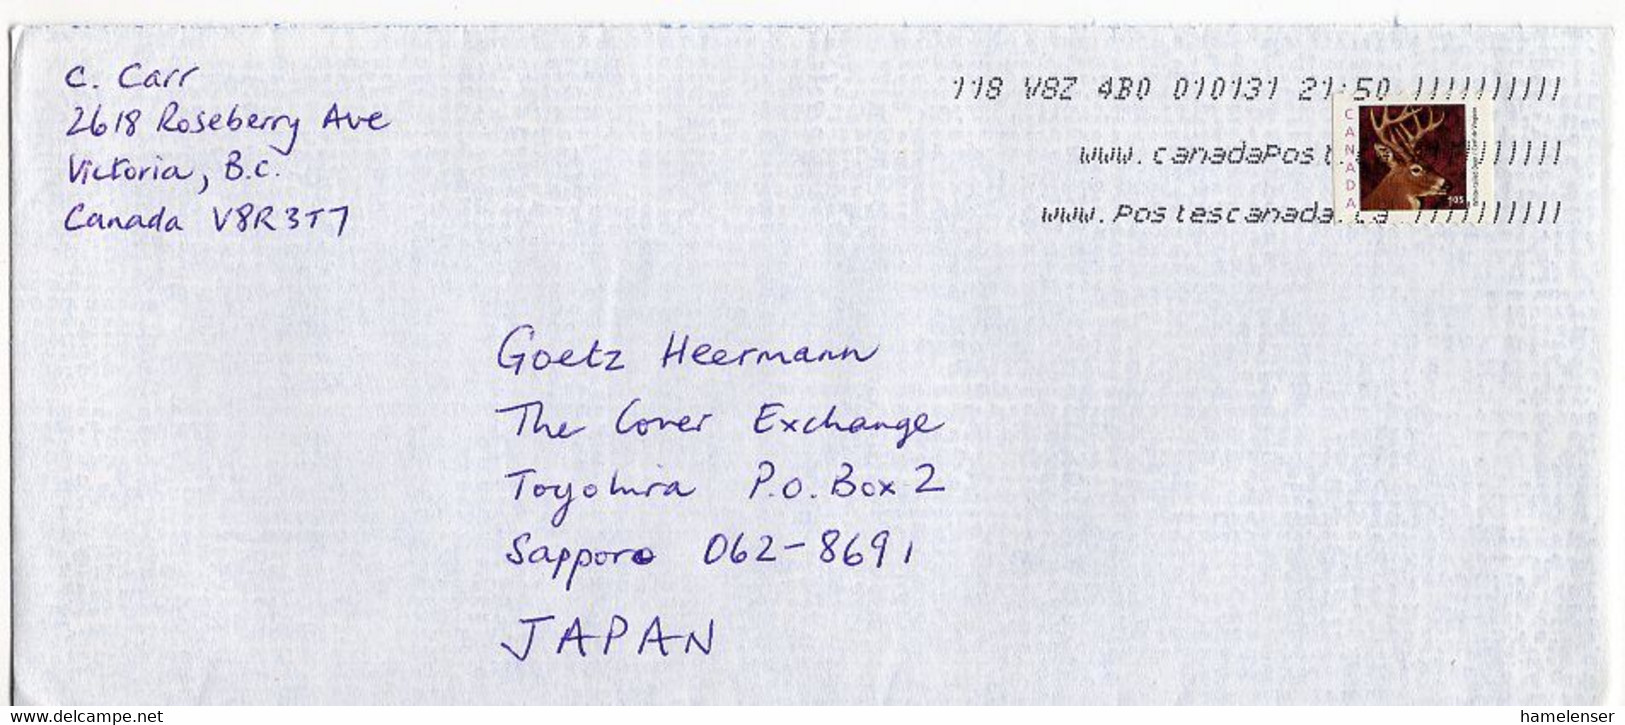 C. Carr
2618 Roseberry Ave
Victoria, B.C.
Canada V8R3T7
118 V8Z 4B0 010131 21:50 !!!!!!!!!!
www.canadaPost.
www.Postescanada.ca !!!!!!!!!!
CANADA
105
Goetz Heermann
The Cover Exchange
Toyohira P.O. Box 2
Sapporo 062-8691
JAPAN
www.delcampe.net
hamelenser